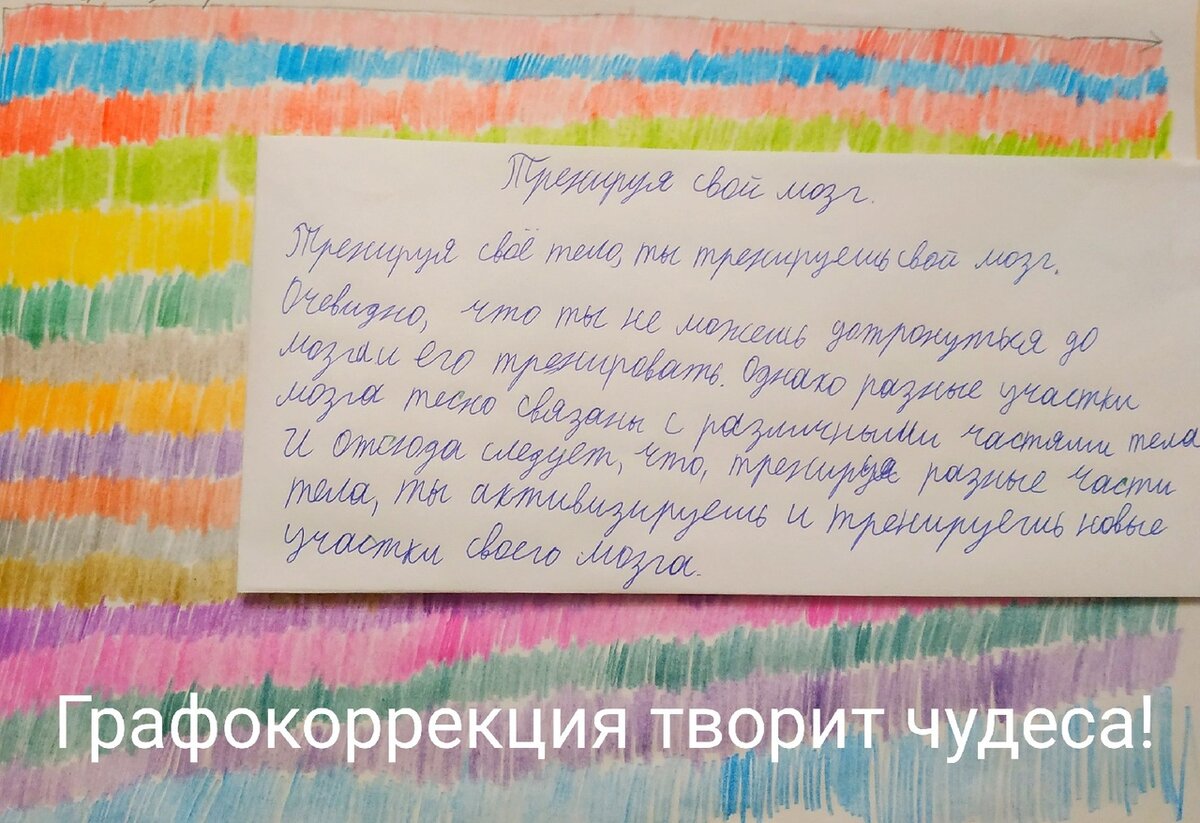 Тренируя свой мозг.
Тренируя своё тело, ты тренируешь свой мозг.
Очевидно, что ты не можешь дотронуться до
мозга и его тренировать. Однако разные участки
мозга тесно связаны с различными частями тела
И отсюда следует, что, тренируя разные части
тела, ты активизируешь и тренируешь новые
участки своего мозга.
Графокоррекция творит чудеса!